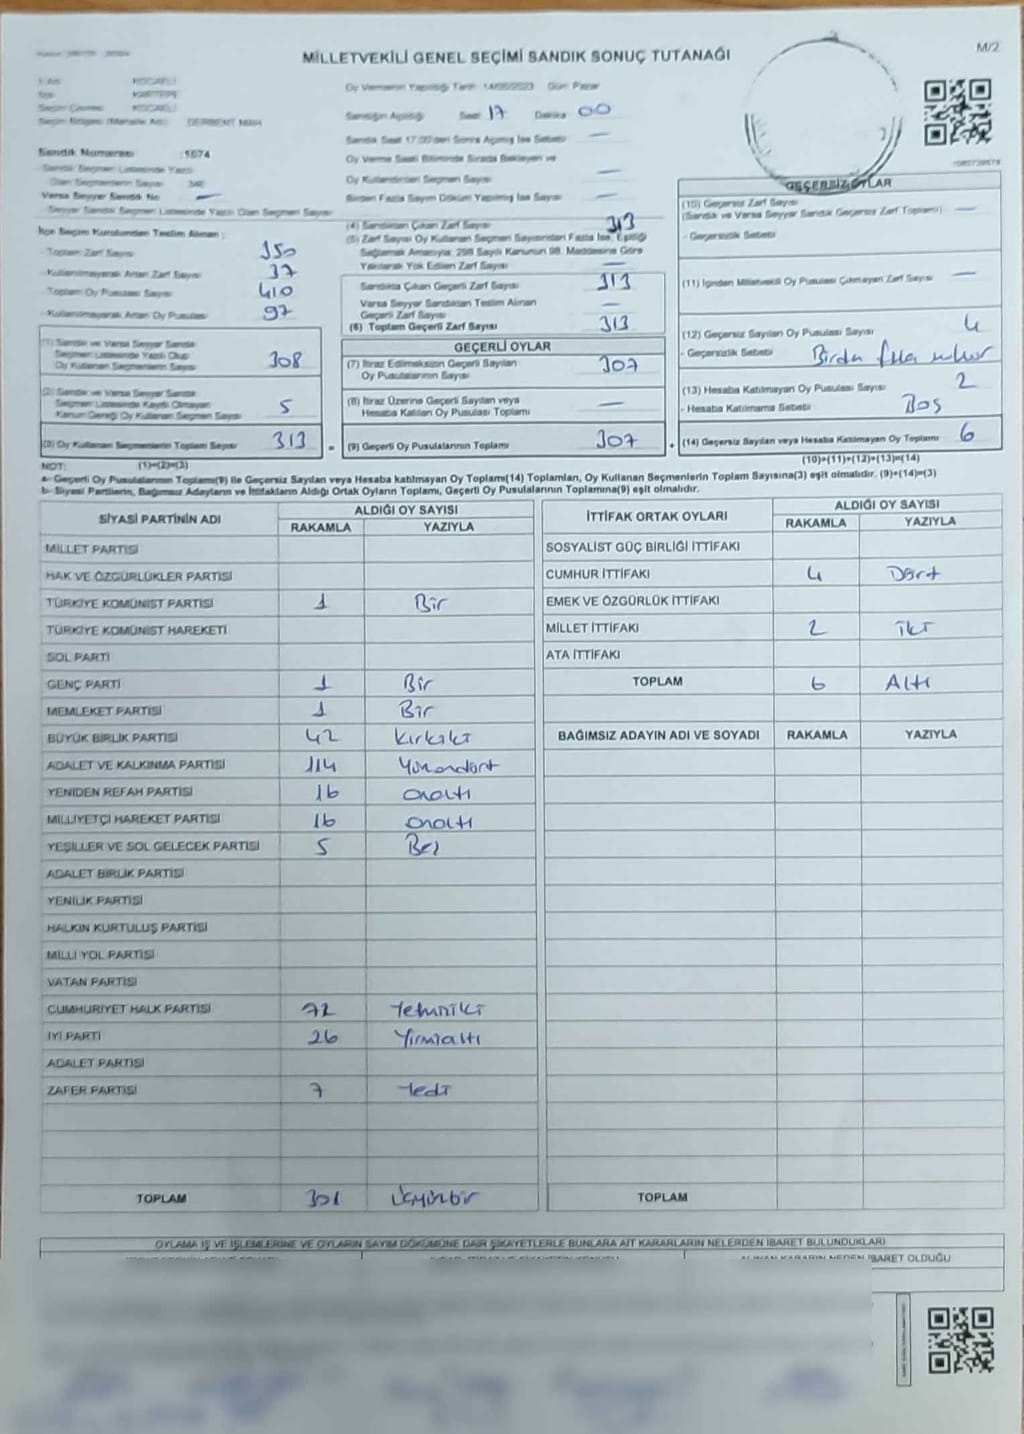 MİLLETVEKİLİ GENEL SEÇİMİ SANDIK SONUÇ TUTANAĞI
M/2
KOCAELİ
KARTEPE
KOCAELİ
DERBENT MAH
Oy Vermenin Yapıldığı Tarih: 14/05/2023 Gün: Pazar
Sandığın Açıldığı Saat 17 Dakika 00
Sandık Saat 17:00'den Sonra Açılmış İse Sebebi —
Oy Verme Saati Bitiminde Sırada Bekleyen ve
Oy Kullandırılan Seçmen Sayısı —
Birden Fazla Sayım Döküm Yapılmış İse Sayısı —
Sandık Numarası
Varsa Seyyar Sandık No —
Seyyar Sandık Seçmen Listesinde Yazılı Olan Seçmen Sayısı
İlçe Seçim Kurulundan Teslim Alınan :
- Toplam Zarf Sayısı 350
- Kullanılmayarak Artan Zarf Sayısı 37
- Toplam Oy Pusulası Sayısı 410
- Kullanılmayarak Artan Oy Pusulası 97
(1) Sandık ve Varsa Seyyar Sandık
Seçmen Listesinde Yazılı Olup
Oy Kullanan Seçmenlerin Sayısı 308
(2) Sandık ve Varsa Seyyar Sandık
Seçmen Listesinde Kayıtlı Olmayan
Kanun Gereği Oy Kullanan Seçmen Sayısı 5
(3) Oy Kullanan Seçmenlerin Toplam Sayısı 313
(4) Sandıktan Çıkan Zarf Sayısı 313
(5) Zarf Sayısı Oy Kullanan Seçmen Sayısından Fazla İse, Eşitliği
Sağlamak Amacıyla, 298 Sayılı Kanunun 98. Maddesine Göre
Yakılarak Yok Edilen Zarf Sayısı —
Sandıkta Çıkan Geçerli Zarf Sayısı 313
Varsa Seyyar Sandıktan Teslim Alınan
Geçerli Zarf Sayısı —
(6) Toplam Geçerli Zarf Sayısı 313
GEÇERLİ OYLAR
(7) İtiraz Edilmeksizin Geçerli Sayılan
Oy Pusulalarının Sayısı 307
(8) İtiraz Üzerine Geçerli Sayılan veya
Hesaba Katılan Oy Pusulası Toplamı —
= (9) Geçerli Oy Pusulalarının Toplamı 307
GEÇERSİZ OYLAR
(10) Geçersiz Zarf Sayısı
(Sandık ve Varsa Seyyar Sandık Geçersiz Zarf Toplamı) —
- Geçersizlik Sebebi
(11) İçinden Milletvekili Oy Pusulası Çıkmayan Zarf Sayısı —
(12) Geçersiz Sayılan Oy Pusulası Sayısı 4
- Geçersizlik Sebebi
(13) Hesaba Katılmayan Oy Pusulası Sayısı 2
- Hesaba Katılmama Sebebi Boş
+ (14) Geçersiz Sayılan veya Hesaba Katılmayan Oy Toplamı 6
NOT: (1)+(2)=(3)
(10)+(11)+(12)+(13)=(14)
a- Geçerli Oy Pusulalarının Toplamı(9) ile Geçersiz Sayılan veya Hesaba katılmayan Oy Toplamı(14) Toplamları, Oy Kullanan Seçmenlerin Toplam Sayısına(3) eşit olmalıdır. (9)+(14)=(3)
b- Siyasi Partilerin, Bağımsız Adayların ve İttifakların Aldığı Ortak Oyların Toplamı, Geçerli Oy Pusulalarının Toplamına(9) eşit olmalıdır.
SİYASİ PARTİNİN ADI ALDIĞI OY SAYISI
RAKAMLA YAZIYLA
MİLLET PARTİSİ
HAK VE ÖZGÜRLÜKLER PARTİSİ
TÜRKİYE KOMÜNİST PARTİSİ 1 Bir
TÜRKİYE KOMÜNİST HAREKETİ
SOL PARTİ
GENÇ PARTİ 1 Bir
MEMLEKET PARTİSİ 1 Bir
BÜYÜK BİRLİK PARTİSİ 42 kırkiki
ADALET VE KALKINMA PARTİSİ 114 Yüzondört
YENİDEN REFAH PARTİSİ 16 onaltı
MİLLİYETÇİ HAREKET PARTİSİ 16 onaltı
YEŞİLLER VE SOL GELECEK PARTİSİ 5 Beş
ADALET BİRLİK PARTİSİ
YENİLİK PARTİSİ
HALKIN KURTULUŞ PARTİSİ
MİLLİ YOL PARTİSİ
VATAN PARTİSİ
CUMHURİYET HALK PARTİSİ 72 Yetmişiki
İYİ PARTİ 26 Yirmialtı
ADALET PARTİSİ
ZAFER PARTİSİ 7 Yedi
TOPLAM 301 Üçyüzbir
İTTİFAK ORTAK OYLARI ALDIĞI OY SAYISI
RAKAMLA YAZIYLA
SOSYALİST GÜÇ BİRLİĞİ İTTİFAKI
CUMHUR İTTİFAKI 4 Dört
EMEK VE ÖZGÜRLÜK İTTİFAKI
MİLLET İTTİFAKI 2 iki
ATA İTTİFAKI
TOPLAM 6 Altı
BAĞIMSIZ ADAYIN ADI VE SOYADI RAKAMLA YAZIYLA
TOPLAM
OYLAMA İŞ VE İŞLEMLERİNE VE OYLARIN SAYIM DÖKÜMÜNE DAİR ŞİKAYETLERLE BUNLARA AİT KARARLARIN NELERDEN İBARET BULUNDUKLARI
ALINAN KARARIN NEDEN İBARET OLDUĞU